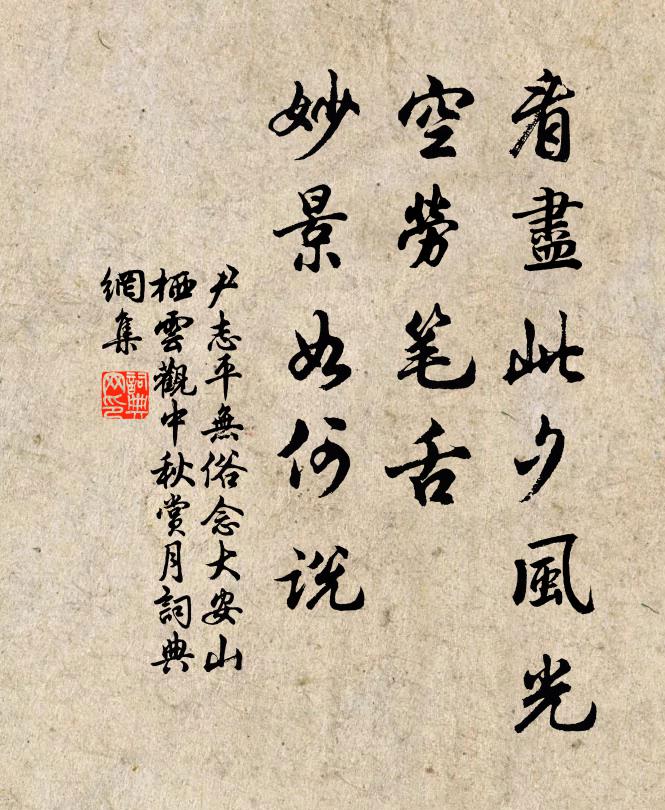 看盡此夕風光
空勞笔舌
妙景如何説
尹志平無俗念大安山
栖雲觀中秋賞月詞典
網集
詞典
網印